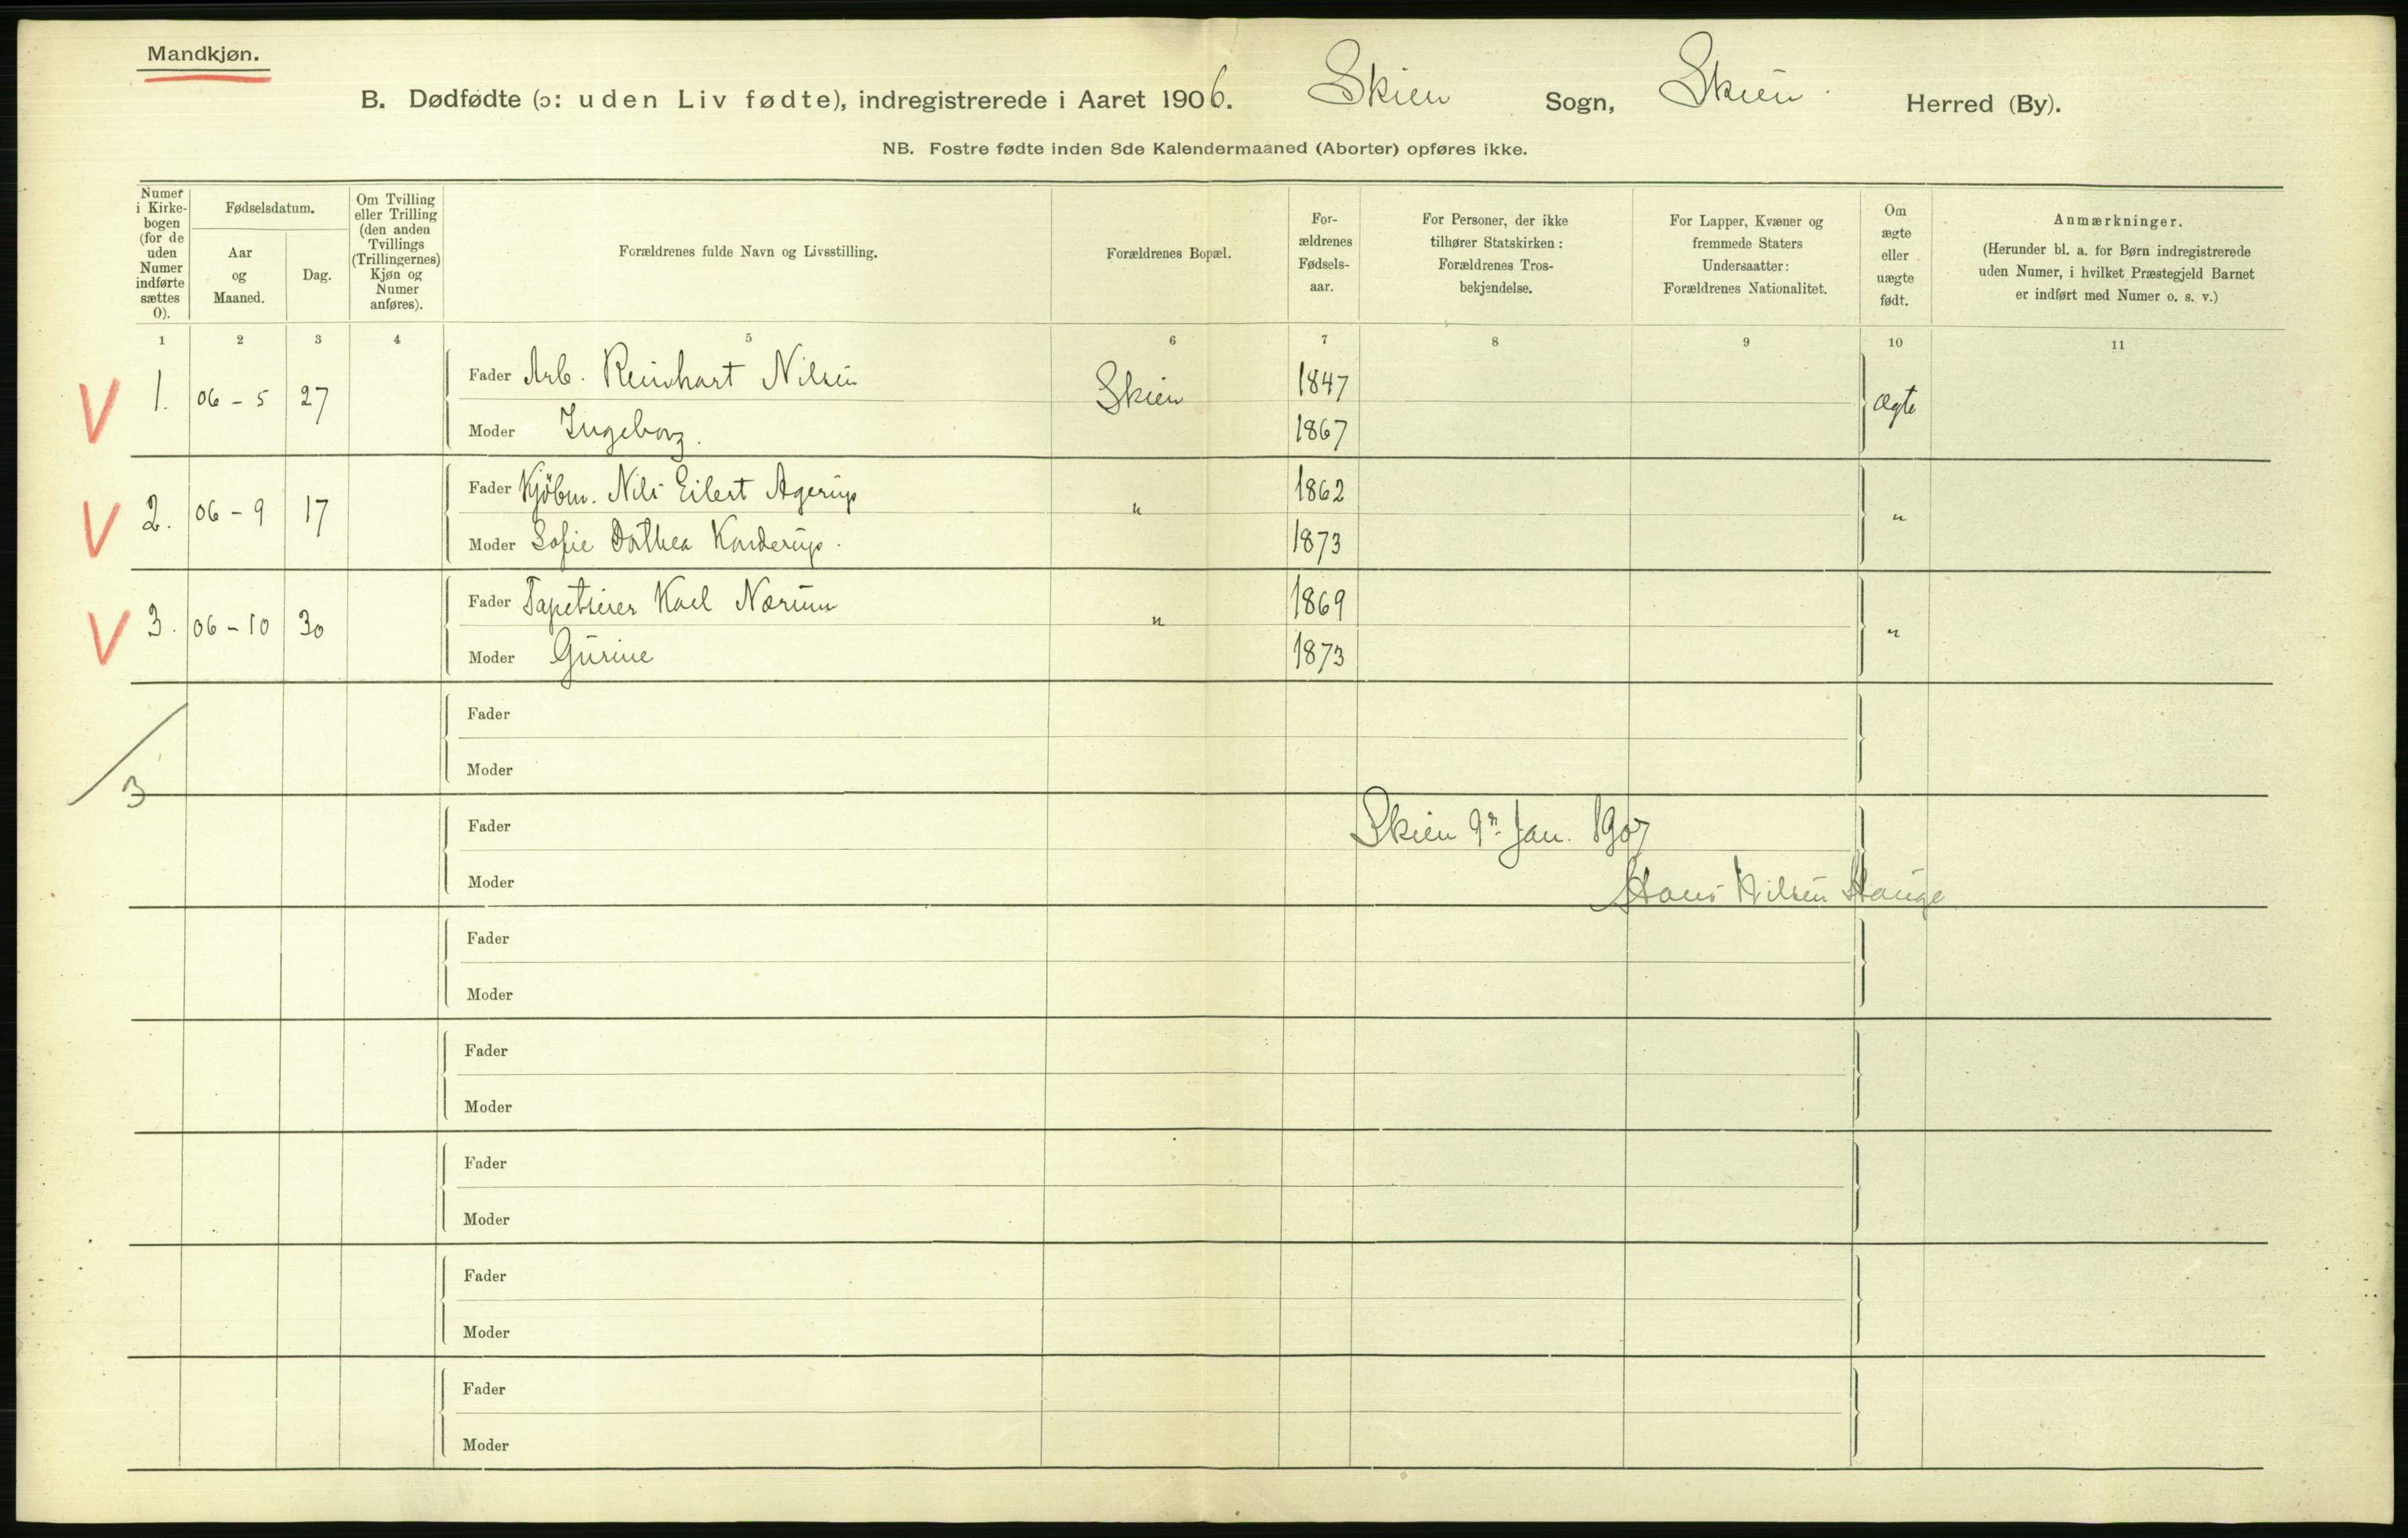 Mandkjøn.
B. Dødfødte (ɔ: uden Liv fødte), indregistrerede i Aaret 1906. Skien Sogn, Skien Herred (By).
NB. Fostre fødte inden 8de Kalendermaaned (Aborter) opføres ikke.
Numer i Kirke-bogen (for de uden Numer indførte sættes 0).
Fødselsdatum.
Aar og Maaned.
Dag.
Om Tvilling eller Trilling (den anden Tvillings (Trillingernes) Kjøn og Numer anføres).
Forældrenes fulde Navn og Livsstilling.
Forældrenes Bopæl.
For-ældrenes Fødsels-aar.
For Personer, der ikke tilhører Statskirken: Forældrenes Tros-bekjendelse.
For Lapper, Kvæner og fremmede Staters Undersaatter: Forældrenes Nationalitet.
Om ægte eller uægte født.
Anmærkninger.
(Herunder bl. a. for Børn indregistrerede uden Numer, i hvilket Præstegjeld Barnet er indført med Numer o. s. v.)
1 2 3 4 5 6 7 8 9 10 11
V 1. 06 - 5 27 Fader Arb. Reinhart Nilsen Skien 1847 Ægte
Moder Ingeborg. 1867
V 2. 06 - 9 17 Fader Kjøbm. Nils Eilert Agerup " 1862 "
Moder Sofie Dorthea 1873
V 3. 06 - 10 30 Fader Tapetserer Karl Nærum " 1869 "
Moder Gurine 1873
Fader
Moder
3
Fader Skien 9n Jan. 1907
Moder Hans Nilsen Hauge
Fader
Moder
Fader
Moder
Fader
Moder
Fader
Moder
Fader
Moder